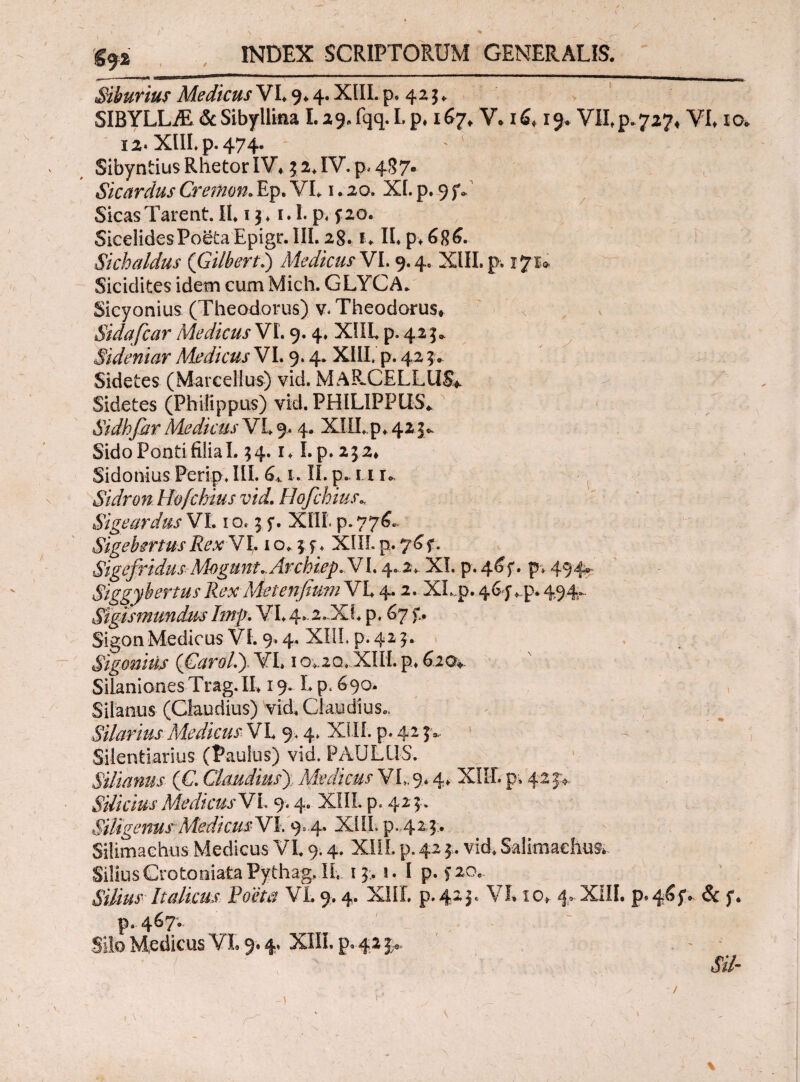 692 INDEX SCRIPTORUM GENERALIS.
Siburius Medicus VI. 9. 4. XIII. p. 423.
SIBYLLÆ & Sibyllina I. 29. ſqq. I. p. 167. V. 16. 19. VII. p. 727. VI. 10.
12. XIII. p. 474.
Sibyntius Rhetor IV. 32. IV. p. 487.
Sicardus Cremon. Ep. VI. 1. 20. XI. p. 95.
Sicas Tarent. II. 13. 1. I. p. 520.
Sicelides Poëta Epigr. III. 28. 1. II. p. 686.
Sichaldus (Gilbert.) Medicus VI. 9. 4. XIII. p. 171.
Sicidites idem cum Mich. GLYCA.
Sicyonius (Theodorus) v. Theodorus.
Sidaſcar Medicus VI. 9. 4. XIII. p. 423.
Sideniar Medicus VI. 9. 4. XIII. p. 423.
Sidetes (Marcellus) vid. MARCELLUS.
Sidetes (Philippus) vid. PHILIPPUS.
Sidhſar Medicus VI. 9. 4. XIII. p. 423.
Sido Ponti filia I. 34. 1. I. p. 232.
Sidonius Perip. III. 6. 1. II. p. 111.
Sidron Hoſchius vid. Hoſchius.
Sigeardus VI. 10. 35. XIII. p. 776.
Sigebertus Rex VI. 10. 35. XIII. p. 765.
Sigefridus Mogunt. Archiep. VI. 4. 2. XI. p. 465. p. 494.
Siggybertus Rex Metenſium VI. 4. 2. XI. p. 465. p. 494.
Sigismundus Imp. VI. 4. 2. XI. p. 675.
Sigon Medicus VI. 9. 4. XIII. p. 423.
Sigonius (Carol.) VI. 10. 20. XIII. p. 620.
Silaniones Trag. II. 19. I. p. 690.
Silanus (Claudius) vid. Claudius.
Silarius Medicus VI. 9. 4. XIII. p. 423.
Silentiarius (Paulus) vid. PAULUS.
Silianus (C. Claudius) Medicus VI. 9. 4. XIII. p. 423.
Silicius Medicus VI. 9. 4. XIII. p. 423.
Siligenus Medicus VI. 9. 4. XIII. p. 423.
Silimachus Medicus VI. 9. 4. XIII. p. 423. vid. Salimachus.
Silius Crotoniata Pythag. II. 13. 1. I p. 520.
Silius Italicus Poëta VI. 9. 4. XIII. p. 423. VI. 10. 4. XIII. p. 465. & ſ.
p. 467.
Silo Medicus VI. 9. 4. XIII. p. 423.
Sil-